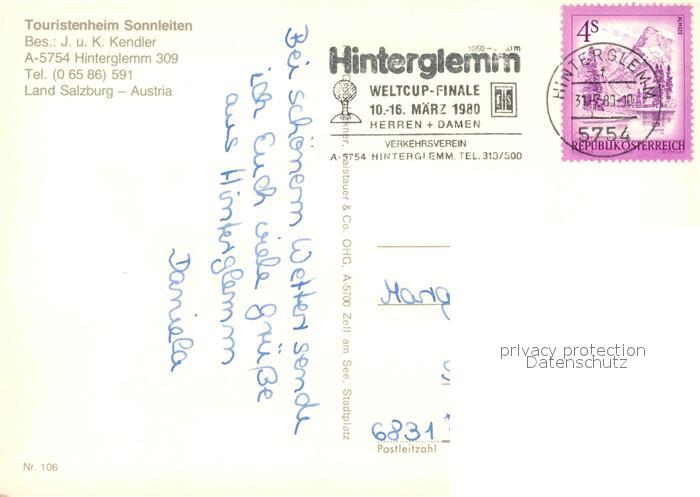 Touristenheim Sonnleiten
Bes.: J. u. K. Kendler
A-5754 Hinterglemm 309
Tel. (0 65 86) 591
Land Salzburg – Austria
Bei schönem Wetter sende
ich Euch viele Grüße
aus Hinterglemm
Daniela
Nr. 106
Hinterglemm
WELTCUP-FINALE
10.-16. MÄRZ 1980
HERREN + DAMEN
VERKEHRSVEREIN
A-5754 HINTERGLEMM. TEL. 313/500
4S
ALMSEE
REPUBLIK ÖSTERREICH
HINTERGLEMM
5754
& Co. OHG, A-5700 Zell am See, Stadtplatz
Marg
6831
Postleitzahl
privacy protection
Datenschutz